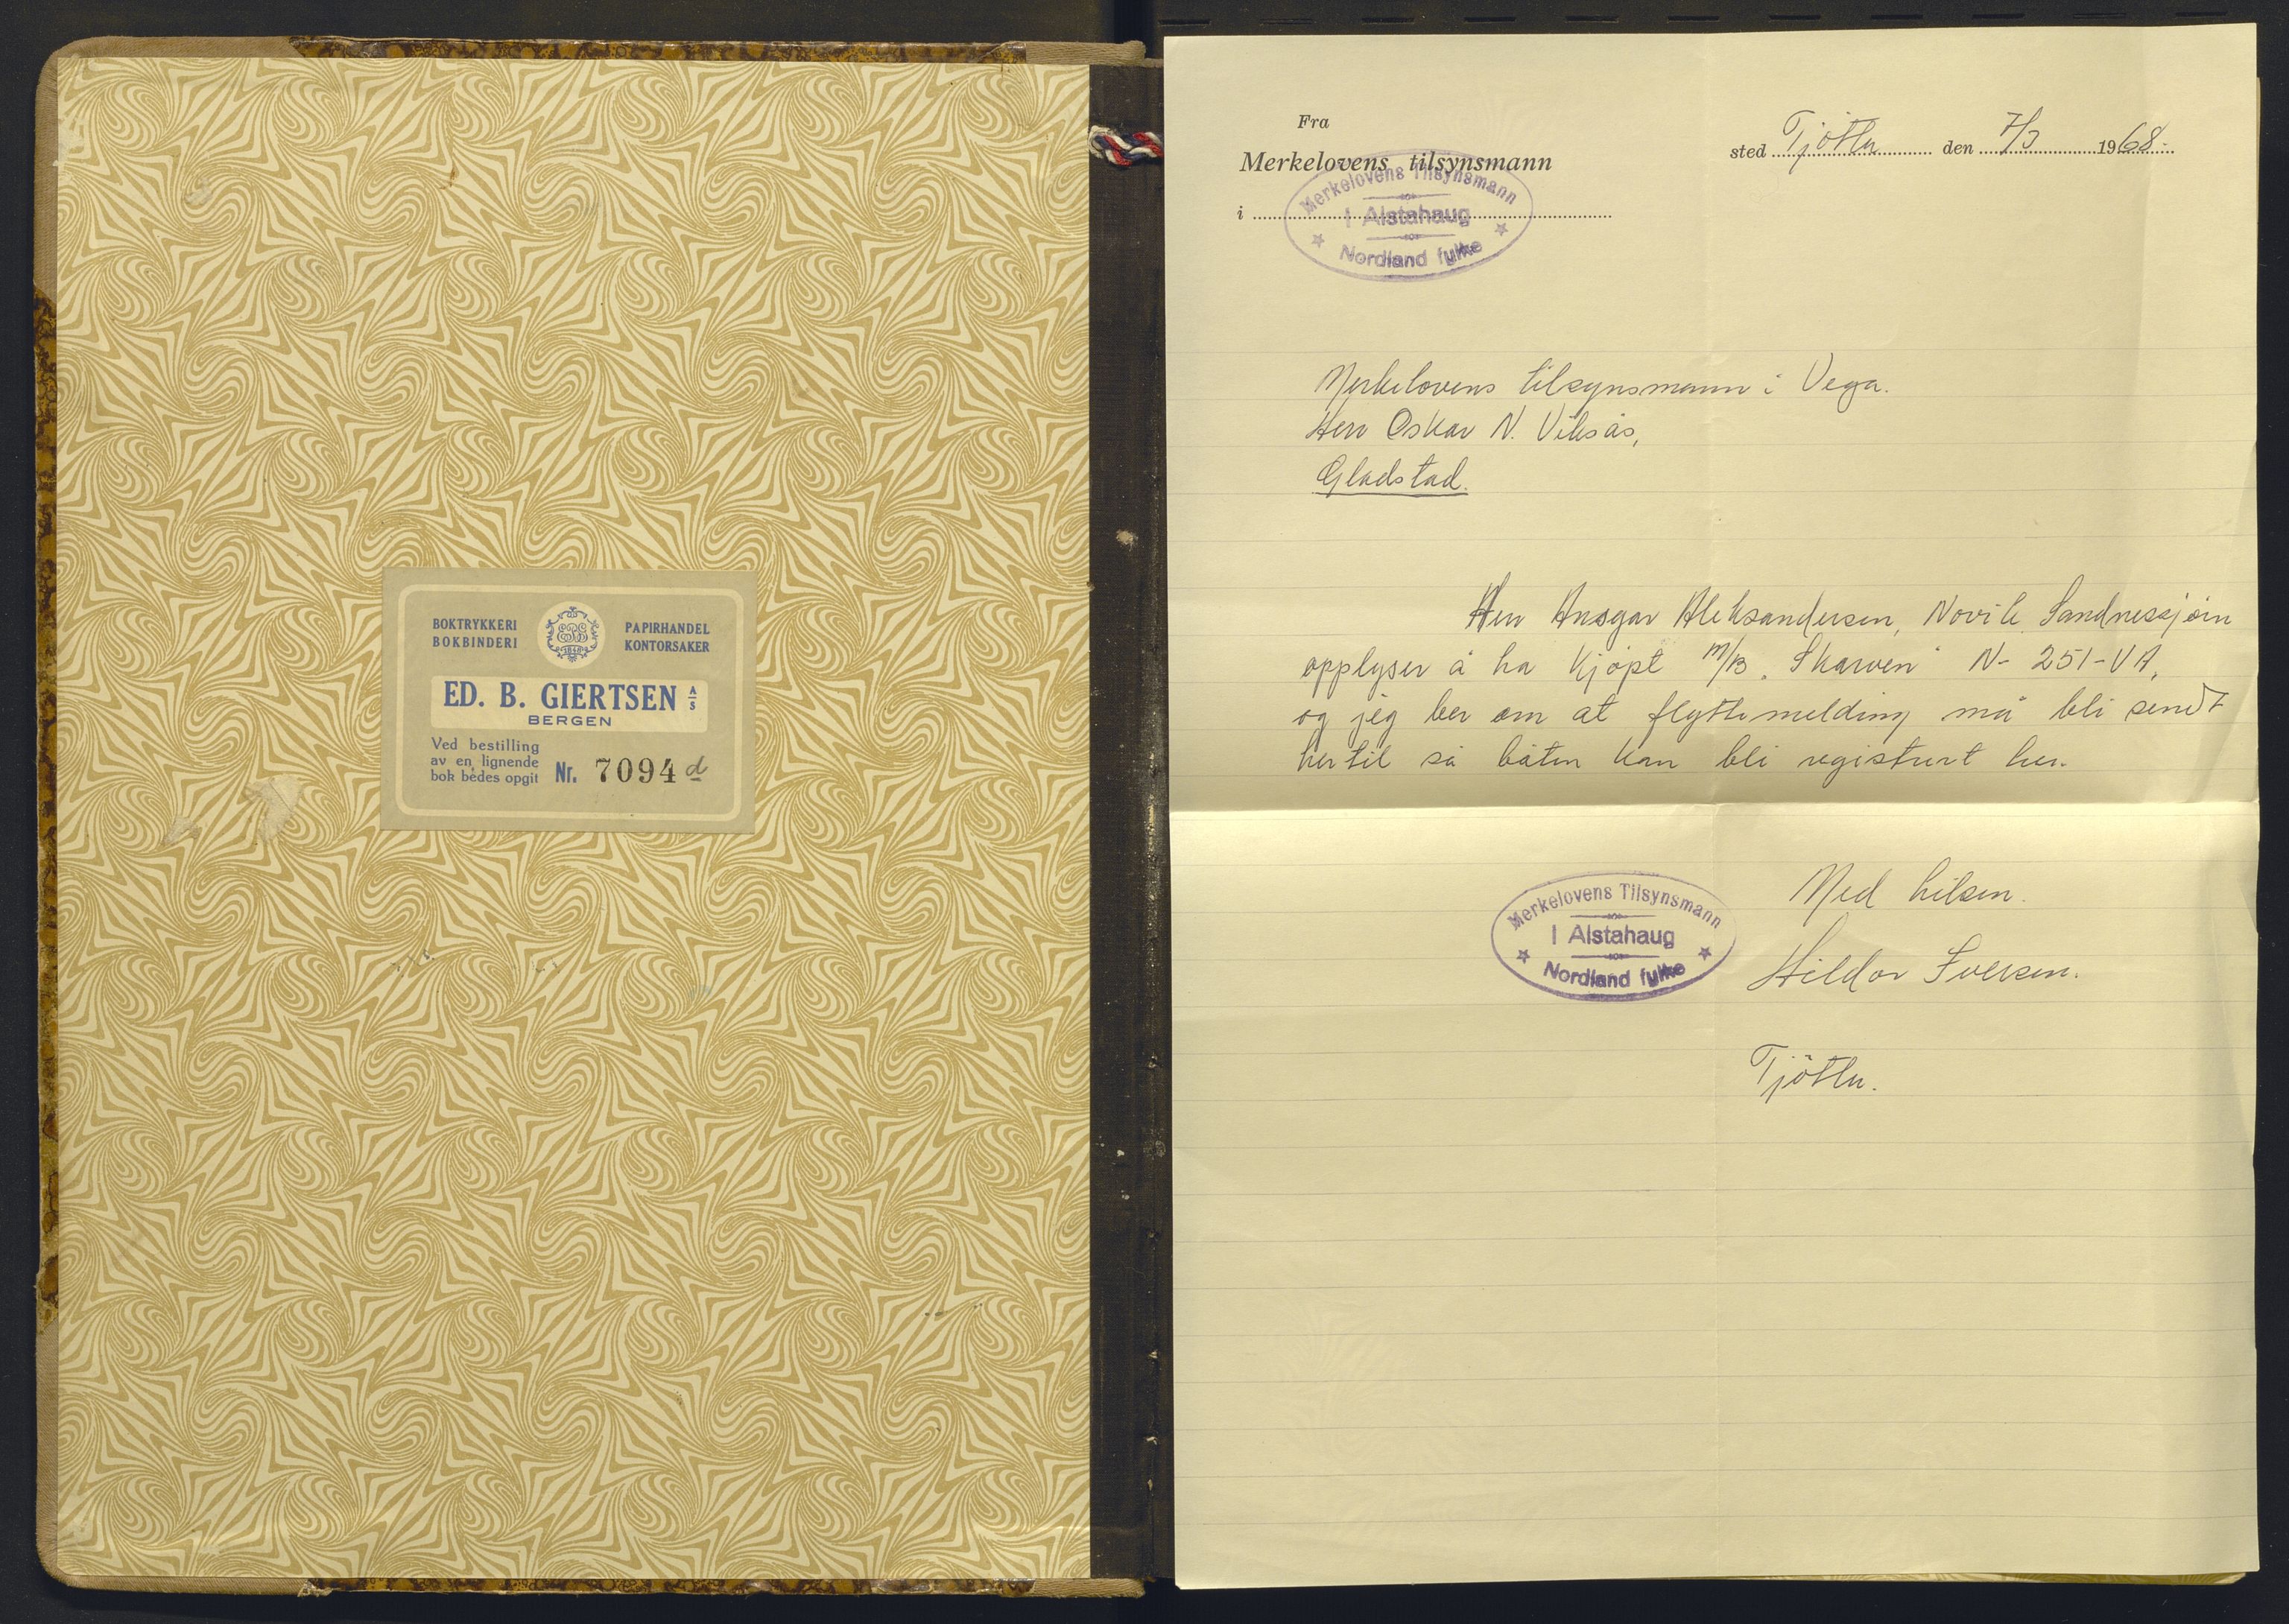 BOKTRYKKERI
BOKBINDERI
PAPIRHANDEL
KONTORSAKER
1848
ED. B. GIERTSEN A/S
BERGEN
Ved bestilling
av en lignende
bok bedes opgit Nr. 7094 d
Fra
Merkelovens tilsynsmann
i
sted Tjøtta den 7/3 1968.
Merkelovens Tilsynsmann
I Alstahaug
Nordland fylke
Merkelovens tilsynsmann i Vega.
Herr Oskar N. Viksås,
Gladstad.
Herr Ansgar Aleksandersen, Sandnessjøen
opplyser å ha kjøpt M/B „Skarven" N-251-VA,
og jeg ber om at flyttemelding må bli sendt
hertil så båten kan bli registrert her.
Med hilsen.
Hildor Iversen.
Tjøtta.
Merkelovens Tilsynsmann
I Alstahaug
Nordland fylke